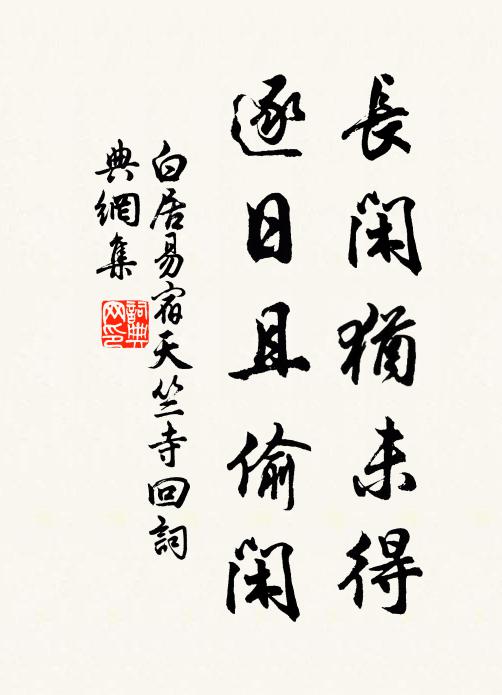 長閑猶未得
逐日且偷閑
白居易宿天竺寺回詞
典網集
詞典
网印